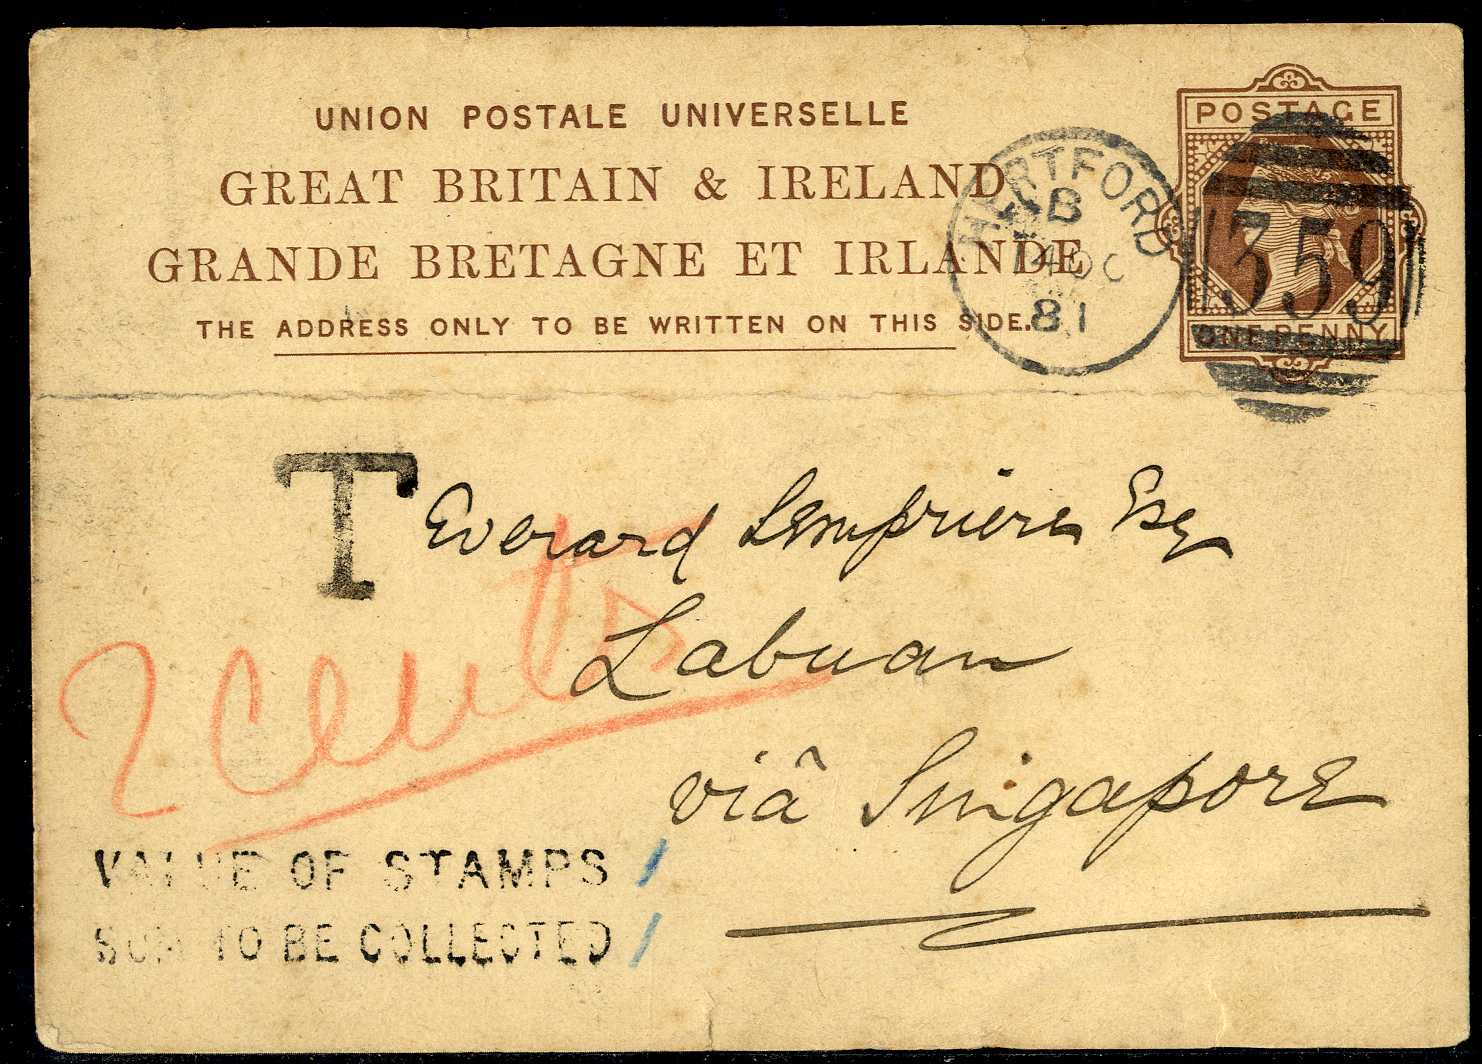 UNION POSTALE UNIVERSELLE
GREAT BRITAIN & IRELAND
GRANDE BRETAGNE ET IRLANDE
THE ADDRESS ONLY TO BE WRITTEN ON THIS SIDE.
HERTFORD
B
14 OC
81
POSTAGE
359
ONE PENNY
T
Everard Lempriere Esq
Labuan
viâ Singapore
2 cents
VALUE OF STAMPS /
SUM TO BE COLLECTED /